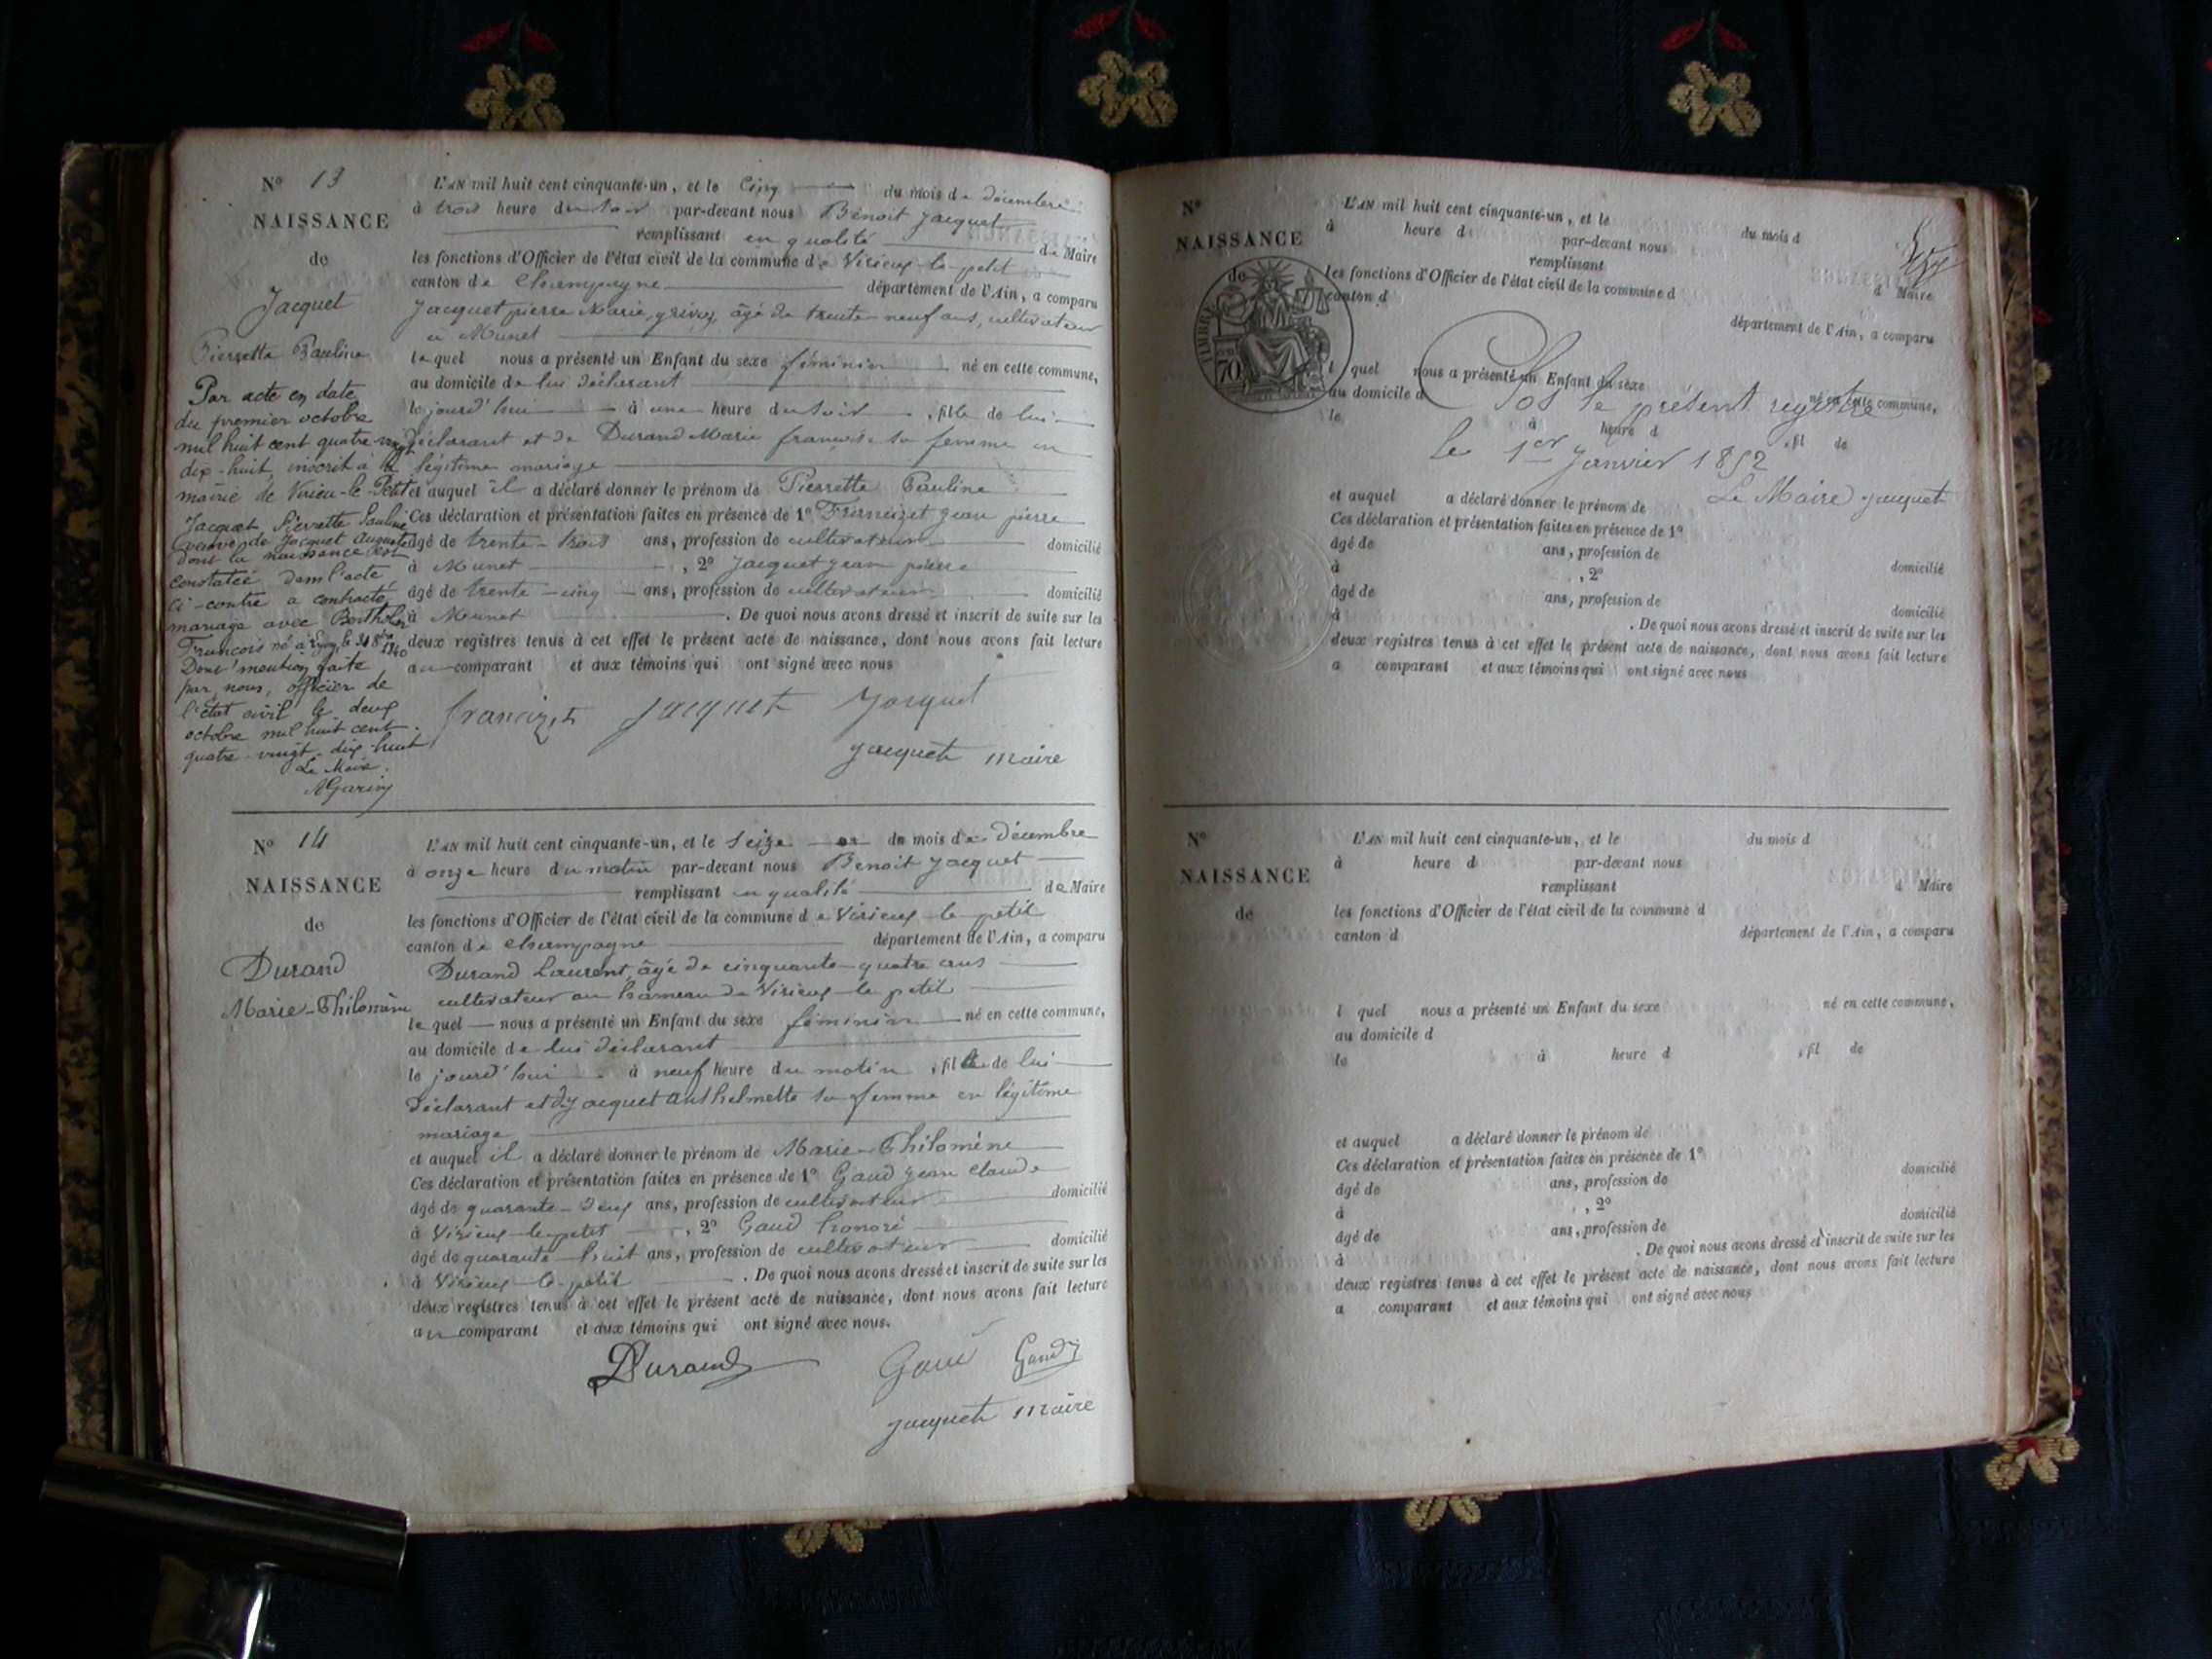 N° 13
NAISSANCE
de
Jacquet
Pierrette Pauline
Par acte en date
du premier octobre
mil huit cent quatre vingt
dix-huit, inscrit à la
mairie de Virieu-le-Petit
Jacquet Pierrette Pauline
veuve de Jacquet Auguste
dont la naissance est
constatée dans l'acte
ci-contre a contracté
mariage avec
François né à Lyon, le 31 8bre 1840
Dont mention faite
par nous, officier de
l'état civil le deux
octobre mil huit cent
quatre-vingt-dix-huit
Le Maire
L'AN mil huit cent cinquante-un, et le Cinq du mois de décembre
à trois heure du soir par-devant nous Benoit Jacquet
remplissant en qualité de Maire
les fonctions d'Officier de l'état civil de la commune de Virieux-le-petit
canton de Champagne département de l'Ain, a comparu
Jacquet pierre Marie, âgé de trente-neuf ans, cultivateur
à Munet
lequel nous a présenté un Enfant du sexe féminin né en cette commune,
au domicile de lui déclarant
le jourd'hui à une heure du soir, fille de lui
déclarant et de Durand Marie françoise sa femme en
légitime mariage
et auquel il a déclaré donner le prénom de Pierrette Pauline
Ces déclaration et présentation faites en présence de 1° Francizet jean pierre
âgé de trente-trois ans, profession de cultivateur domicilié
à Munet, 2° Jacquet jean pierre
âgé de trente-cinq ans, profession de cultivateur domicilié
à Munet. De quoi nous avons dressé et inscrit de suite sur les
deux registres tenus à cet effet le présent acte de naissance, dont nous avons fait lecture
au comparant et aux témoins qui ont signé avec nous
francizet jacquet Jacquet
jacquet maire
N° 14
NAISSANCE
de
Durand
Marie-Philomène
L'AN mil huit cent cinquante-un, et le Seize du mois de Décembre
à onze heure du matin par-devant nous Benoit Jacquet
remplissant en qualité de Maire
les fonctions d'Officier de l'état civil de la commune de Virieux-le-petit
canton de Champagne département de l'Ain, a comparu
Durand Laurent, âgé de cinquante-quatre ans
cultivateur au hameau de Virieux-le-petit
lequel nous a présenté un Enfant du sexe féminin né en cette commune,
au domicile de lui déclarant
le jourd'hui à neuf heure du matin, fille de lui
Déclarant et de Jacquet Anthelmette sa femme en légitime
mariage
et auquel il a déclaré donner le prénom de Marie-Philomène
Ces déclaration et présentation faites en présence de 1° Gaud jean claude
âgé de quarante-deux ans, profession de cultivateur domicilié
à Virieux-le-petit, 2° Gaud honoré
âgé de quarante-huit ans, profession de cultivateur domicilié
à Virieux-le-petit. De quoi nous avons dressé et inscrit de suite sur les
deux registres tenus à cet effet le présent acte de naissance, dont nous avons fait lecture
au comparant et aux témoins qui ont signé avec nous.
Durand Gaud Gaud
jacquet maire
N°
NAISSANCE
de
TIMBRE
70
L'AN mil huit cent cinquante-un, et le du mois d
à heure d par-devant nous
remplissant d Maire
les fonctions d'Officier de l'état civil de la commune d
canton d département de l'Ain, a comparu
l quel nous a présenté un Enfant du sexe né en cette commune,
au domicile d
Clos le présent registre
le à heure d , fil de
le 1er Janvier 1852
Le Maire jacquet
et auquel a déclaré donner le prénom de
Ces déclaration et présentation faites en présence de 1°
âgé de ans, profession de domicilié
à , 2°
âgé de ans, profession de domicilié
à . De quoi nous avons dressé et inscrit de suite sur les
deux registres tenus à cet effet le présent acte de naissance, dont nous avons fait lecture
a comparant et aux témoins qui ont signé avec nous
N°
NAISSANCE
de
L'AN mil huit cent cinquante-un, et le du mois d
à heure d par-devant nous
remplissant d Maire
les fonctions d'Officier de l'état civil de la commune d
canton d département de l'Ain, a comparu
l quel nous a présenté un Enfant du sexe né en cette commune,
au domicile d
le à heure d , fil de
et auquel a déclaré donner le prénom de
Ces déclaration et présentation faites en présence de 1°
âgé de ans, profession de domicilié
à , 2°
âgé de ans, profession de domicilié
à . De quoi nous avons dressé et inscrit de suite sur les
deux registres tenus à cet effet le présent acte de naissance, dont nous avons fait lecture
a comparant et aux témoins qui ont signé avec nous